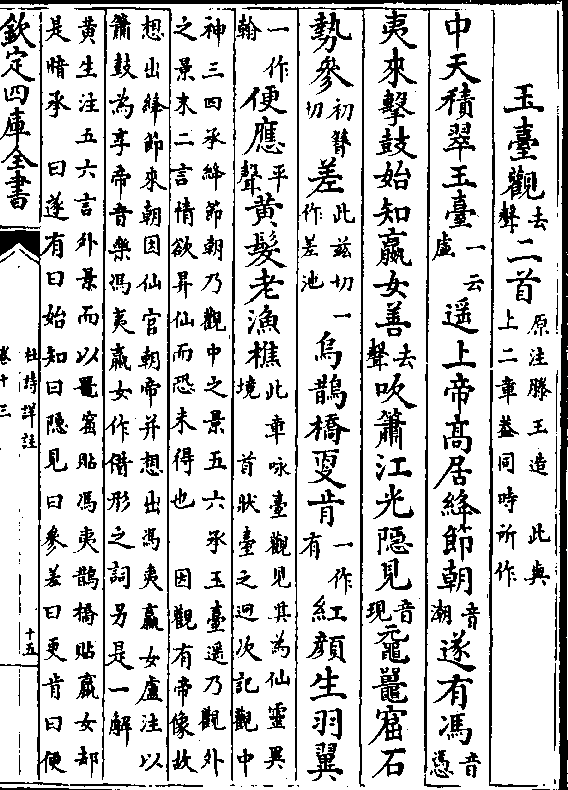 玉臺觀去聲二首原注滕王造 此與上二章蓋同時所作
中天積翠玉臺一云虛遥上帝髙居絳節朝音潮遂有馮音憑
夷來擊鼓始知嬴女善去聲吹簫江光隠見音現黿鼉窟石
勢參初簪切差此兹切一作差池烏鵲橋更肯一作有紅顔生羽翼
一作翰便應平聲黄髮老漁樵此章咏臺觀見其為仙靈異境 首狀臺之迥次記觀中
神三四承絳節朝乃觀中之景五六承玉臺遥乃觀外
之景末二言情欲昇仙而恐未得也 因觀有帝像故
想出絳節來朝因仙官朝帝并想出馮夷嬴女盧注以
簫鼓為享帝音樂馮夷嬴女作借形之詞另是一解
黄生注五六言外景而以黿窟貼馮夷鵲橋貼嬴女却
是暗承 曰遂有曰始知曰隠見曰參差曰更肯曰便
欽定四庫全書
杜詩詳註
卷十三
十五